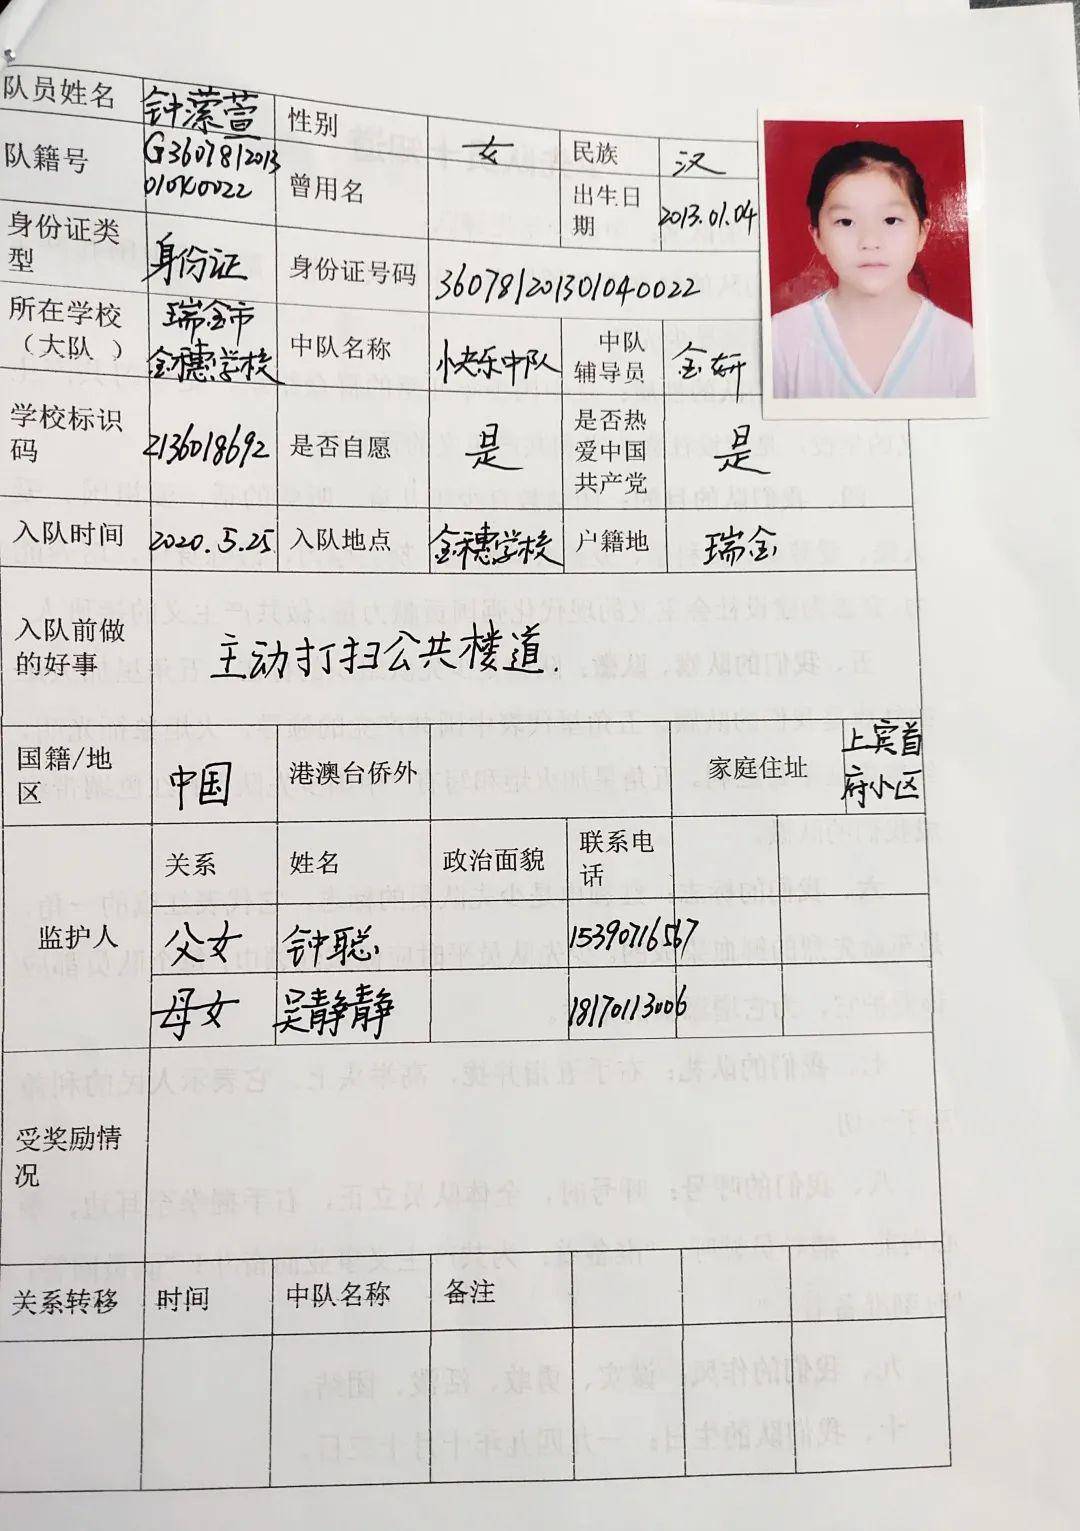 队员姓名
性别 女 民族 汉
队籍号 G3607812013
01040022
曾用名 出生日
期 2013.01.04
身份证类
型 身份证 身份证号码 360781201301040022
所在学校
（大队 ） 瑞金市
金穗学校
中队名称 快乐中队
中队
辅导员 金妍
学校标识
码 2136018692 是否自愿 是
是否热
爱中国
共产党 是
入队时间 2020.5.25 入队地点 金穗学校 户籍地 瑞金
入队前做
的好事 主动打扫公共楼道.
国籍/地
区 中国 港澳台侨外 家庭住址 上宾首
府小区
监护人 关系 姓名 政治面貌 联系电
话
父女 钟聪 15390716567
母女 吴静静 18170113006
受奖励情
况
关系转移 时间 中队名称 备注